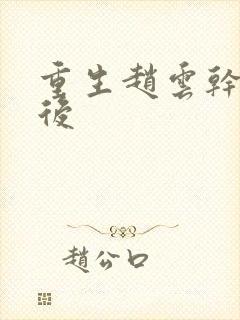 重生趙雲幹
後
趙公口